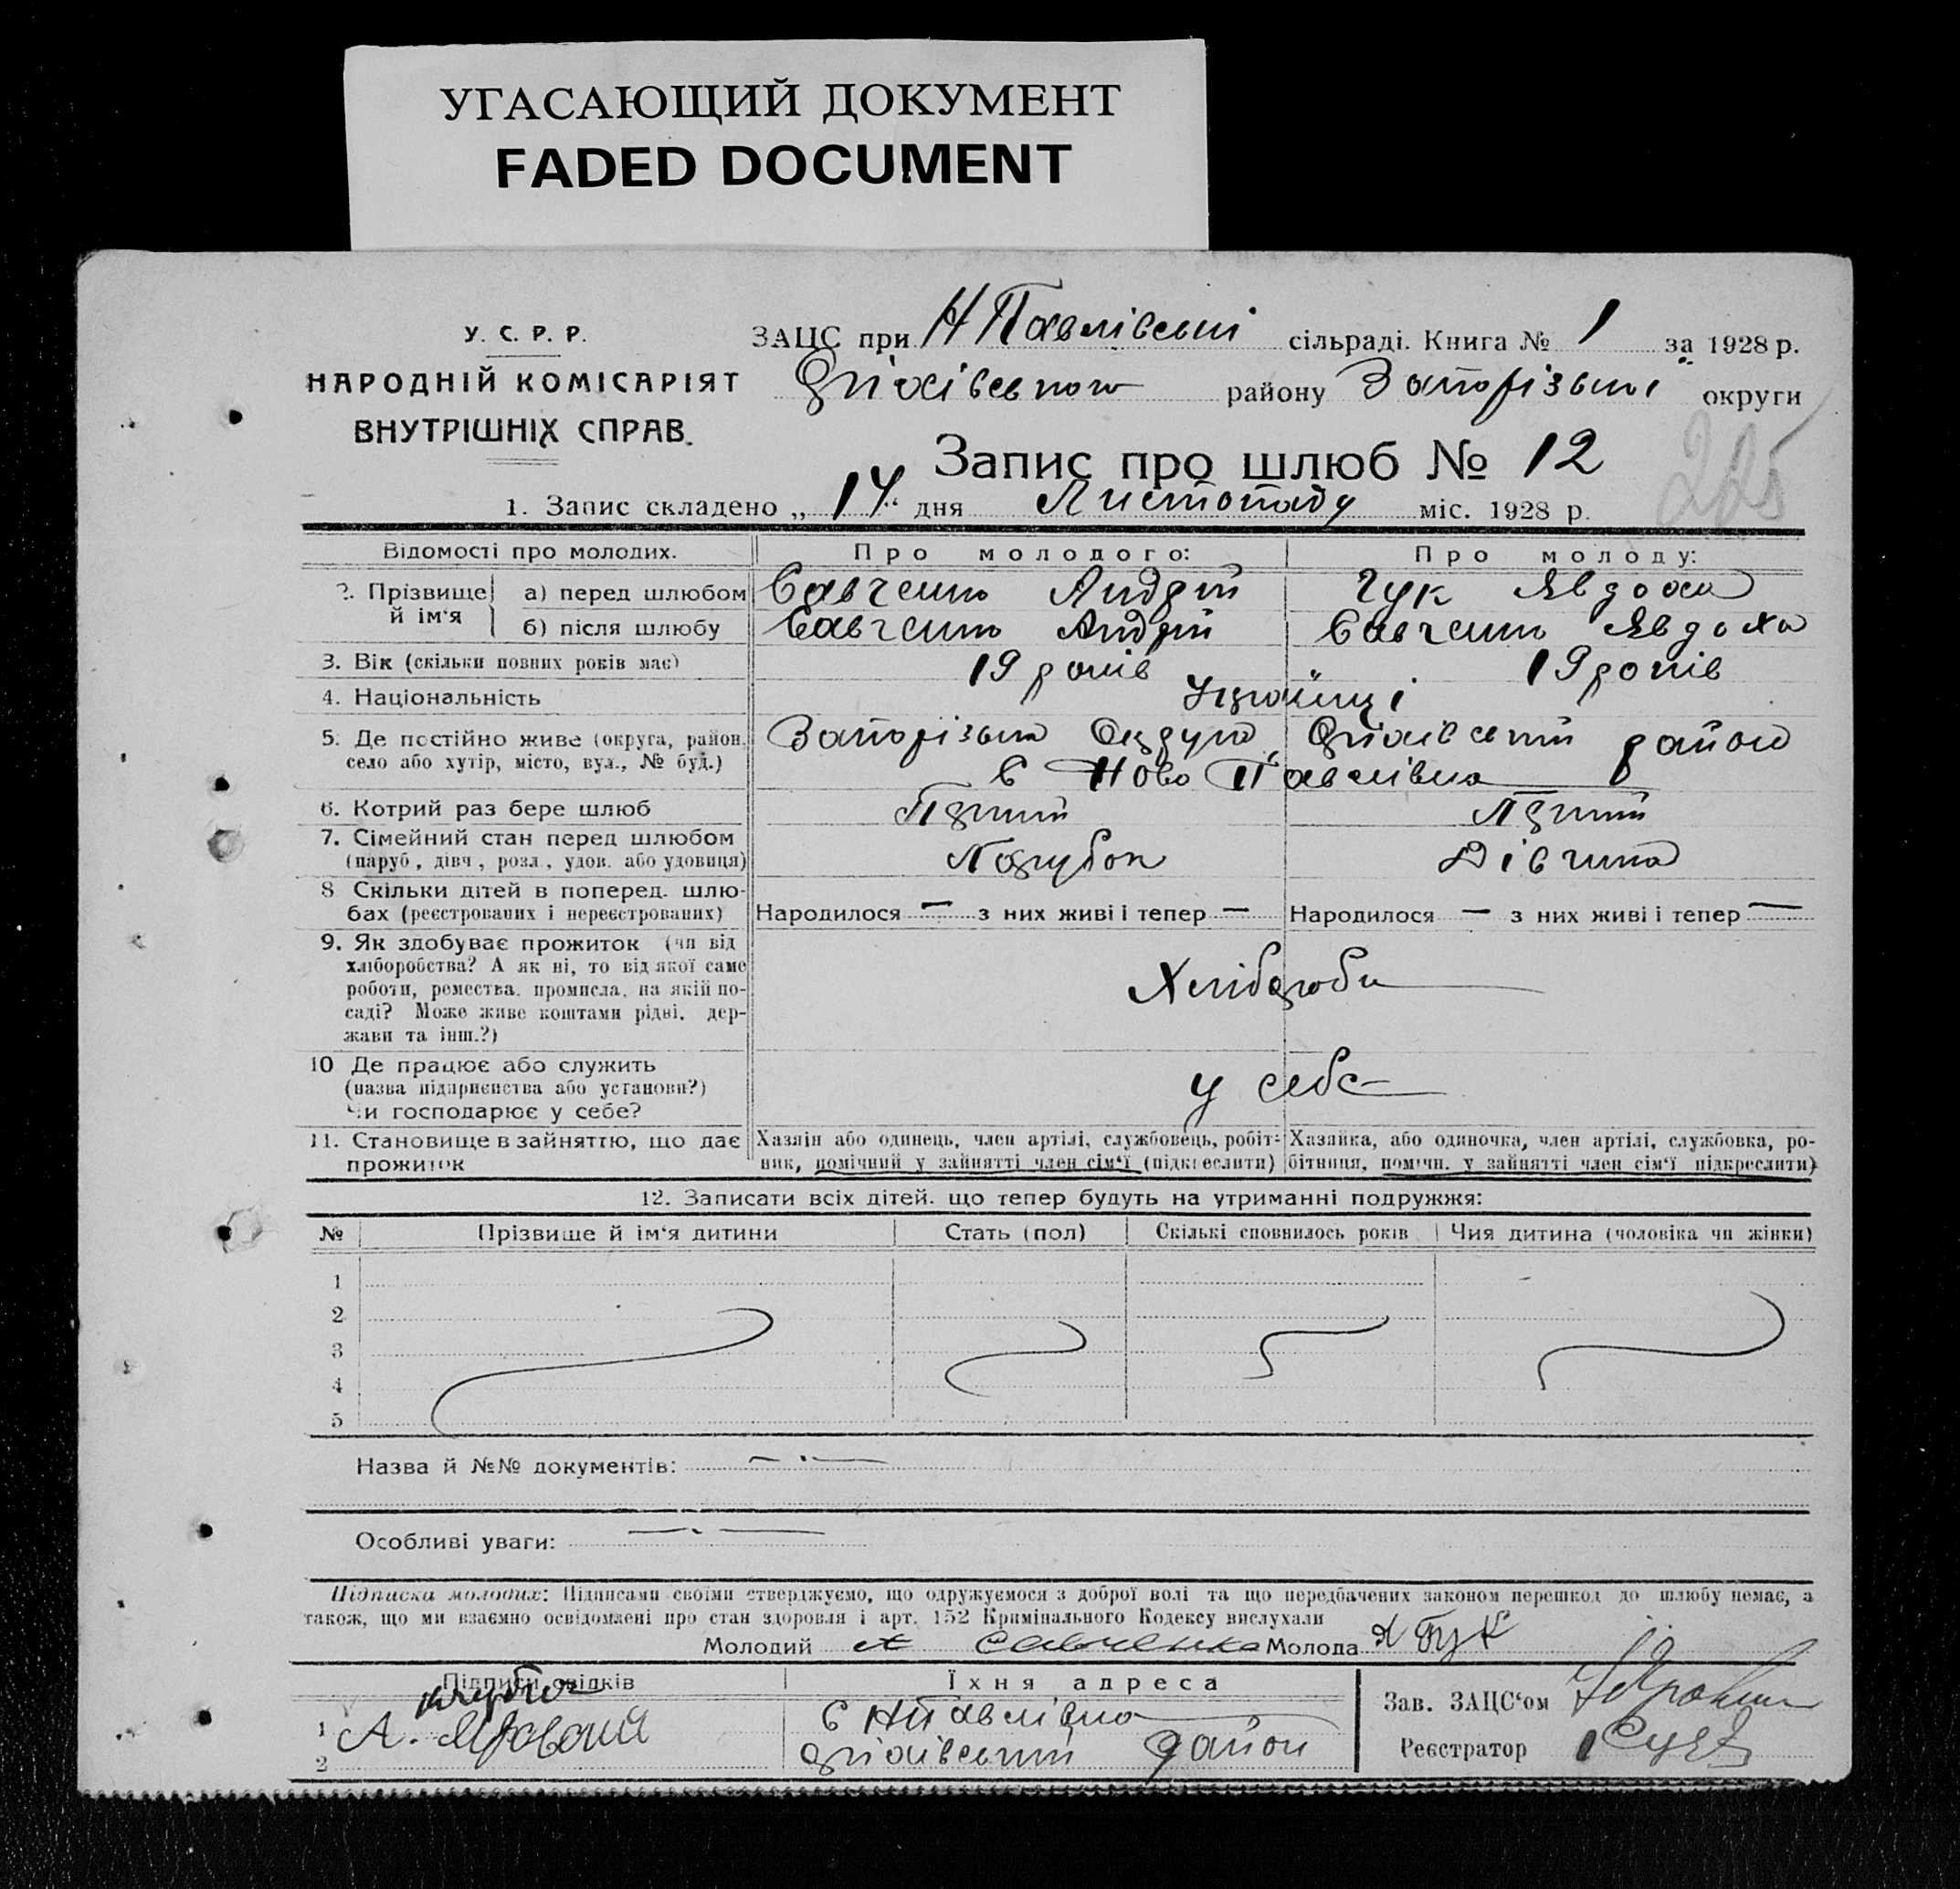 УГАСАЮЩИЙ ДОКУМЕНТ
FADED DOCUMENT
У. С. Р. Р.
НАРОДНІЙ КОМІСАРІЯТ
ВНУТРІШНІХ СПРАВ.
ЗАЦС при Н Павлівські сільраді. Книга № 1 за 1928 р.
Оріхівського району Запорізької округи
Запис про шлюб № 12
225
1. Запис складено „14“ дня Листопаду міс. 1928 р.
Відомості про молодих. Про молодого: Про молоду:
2. Прізвище й ім‘я а) перед шлюбом Савченко Андрій Гук Явдоха
б) після шлюбу Савченко Андрій Савченко Явдоха
3. Вік (скільки повних років має) 19 років 19 років
4. Національність Українці
5. Де постійно живе (округа, район, Запорізька Округа, Оріхівський район
село або хутір, місто, вул., № буд.) С Ново Павлівка
6. Котрий раз бере шлюб Перший Перший
7. Сімейний стан перед шлюбом
(паруб, дівч, розл, удов. або удовиця) Парубок Дівчина
8 Скільки дітей в поперед. шлю-
бах (реєстрованих і нереєстрованих) Народилося — з них живі і тепер — Народилося — з них живі і тепер —
9. Як здобуває прожиток (чи від
хліборобства? А як ні, то від якої саме
роботи, ремества, промисла, на якій по-
саді? Може живе коштами рідні, дер-
жави та інш.?) Хлібороби
10 Де працює або служить
(назва підприємства або установи?)
Чи господарює у себе? у себе
11. Становище в зайняттю, що дає Хазяїн або одинець, член артілі, службовець, робіт- Хазяйка, або одиночка, член артілі, службовка, ро-
прожиток ник, помічний у зайнятті член сім‘ї (підкреслити) бітниця, помічн. у зайнятті член сім‘ї підкреслити)
12. Записати всіх дітей. що тепер будуть на утриманні подружжя:
№ Прізвище й ім‘я дитини Стать (пол) Скількі сповнилось років Чия дитина (чоловіка чи жінки)
1
2
3
4
5
Назва й №№ документів: —
Особливі уваги: —
Підписка молодих: Підписами своїми стверджуємо, що одружуємося з доброї волі та що передбачених законом перешкод до шлюбу немає, а
також, що ми взаємно освідомлені про стан здоровля і арт. 152 Кримінального Кодексу вислухали
Молодий А Савченко Молода Я Гук
Підписи свідків Їхня адреса
1 А. С НПавлівка Зав. ЗАЦС‘ом
2 Оріхівський район Реєстратор